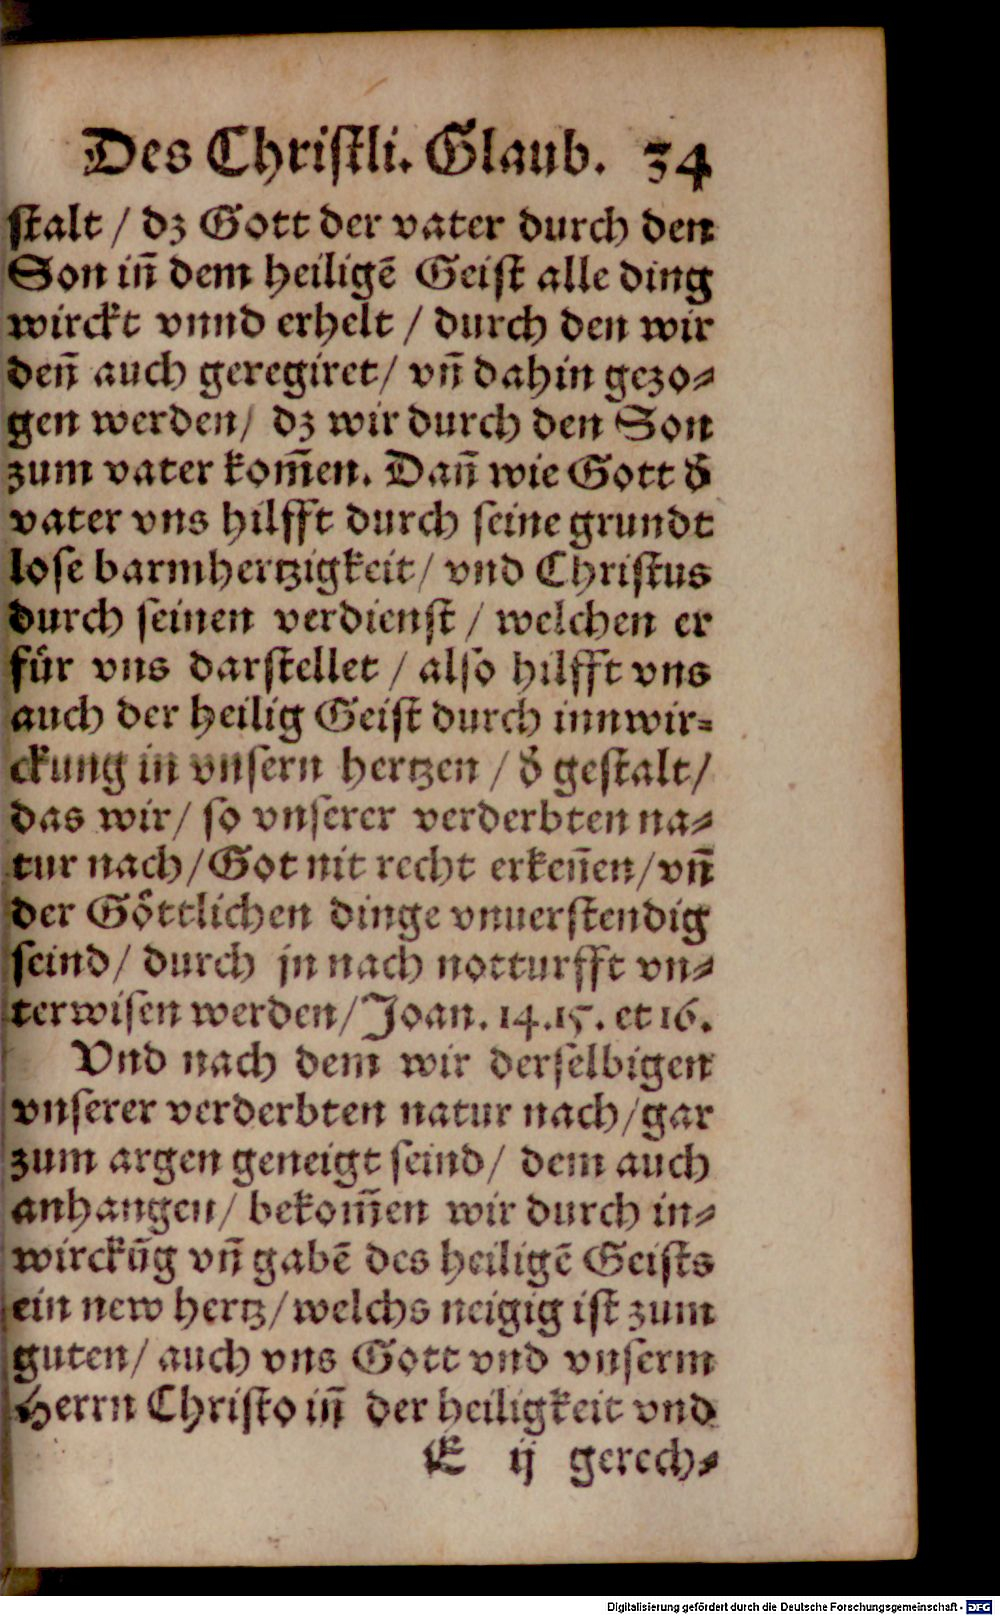 Des Christli. Glaub. 34
stalt / dz Gott der vater durch den
Son iñ dem heiligē Geist alle ding
wirckt vnnd erhelt / durch den wir
deñ auch geregiret / vñ dahin gezo-
gen werden / dz wir durch den Son
zum vater kom̃en. Dañ wie Gott d̕
vater vns hilfft durch seine grundt
lose barmhertzigkeit / vnd Christus
durch seinen verdienst / welchen er
fuͤr vns darstellet / also hilfft vns
auch der heilig Geist durch innwir-
ckung in vnsern hertzen / d̕ gestalt /
das wir / so vnserer verderbten na-
tur nach / Got nit recht erkeñen / vñ
der Goͤttlichen dinge vnuerstendig
seind / durch jn nach notturfft vn-
terwisen werden / Joan. 14.15. et 16.
Vnd nach dem wir derselbigen
vnserer verderbten natur nach / gar
zum argen geneigt seind / dem auch
anhangen / bekom̃en wir durch in-
wirckūg vñ gabē des heiligē Geists
ein new hertz / welchs neigig ist zum
guten / auch vns Gott vnd vnserm
Herrn Christo iñ der heiligkeit vnd
E ij gerech-
Digitalisierung gefördert durch die Deutsche Forschungsgemeinschaft - DFG